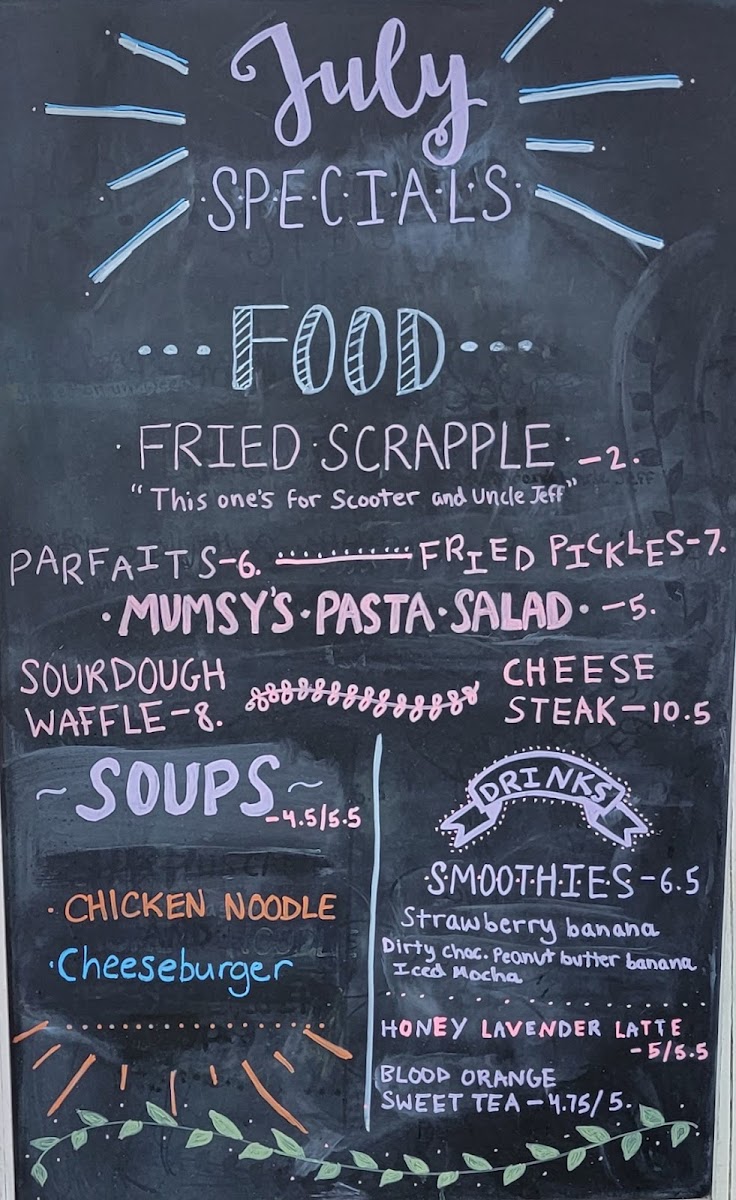 July
S·P·E·C·I·A·L·S·
...FOOD...
·FRIED·SCRAPPLE·-2.
"This one's for Scooter and Uncle Jeff"
PARFAITS-6. FRIED PICKLES-7.
·MUMSY'S·PASTA·SALAD·-5.
SOURDOUGH WAFFLE-8.
CHEESE STEAK-10.5
~SOUPS~
-4.5/5.5
·CHICKEN NOODLE
·Cheeseburger
DRINKS
·S·M·O·O·T·H·I·E·S-6.5
Strawberry banana
Dirty Choc. Peanut butter banana
Iced Mocha
HONEY LAVENDER LATTE
-5/5.5
BLOOD ORANGE
SWEET TEA-4.75/5.